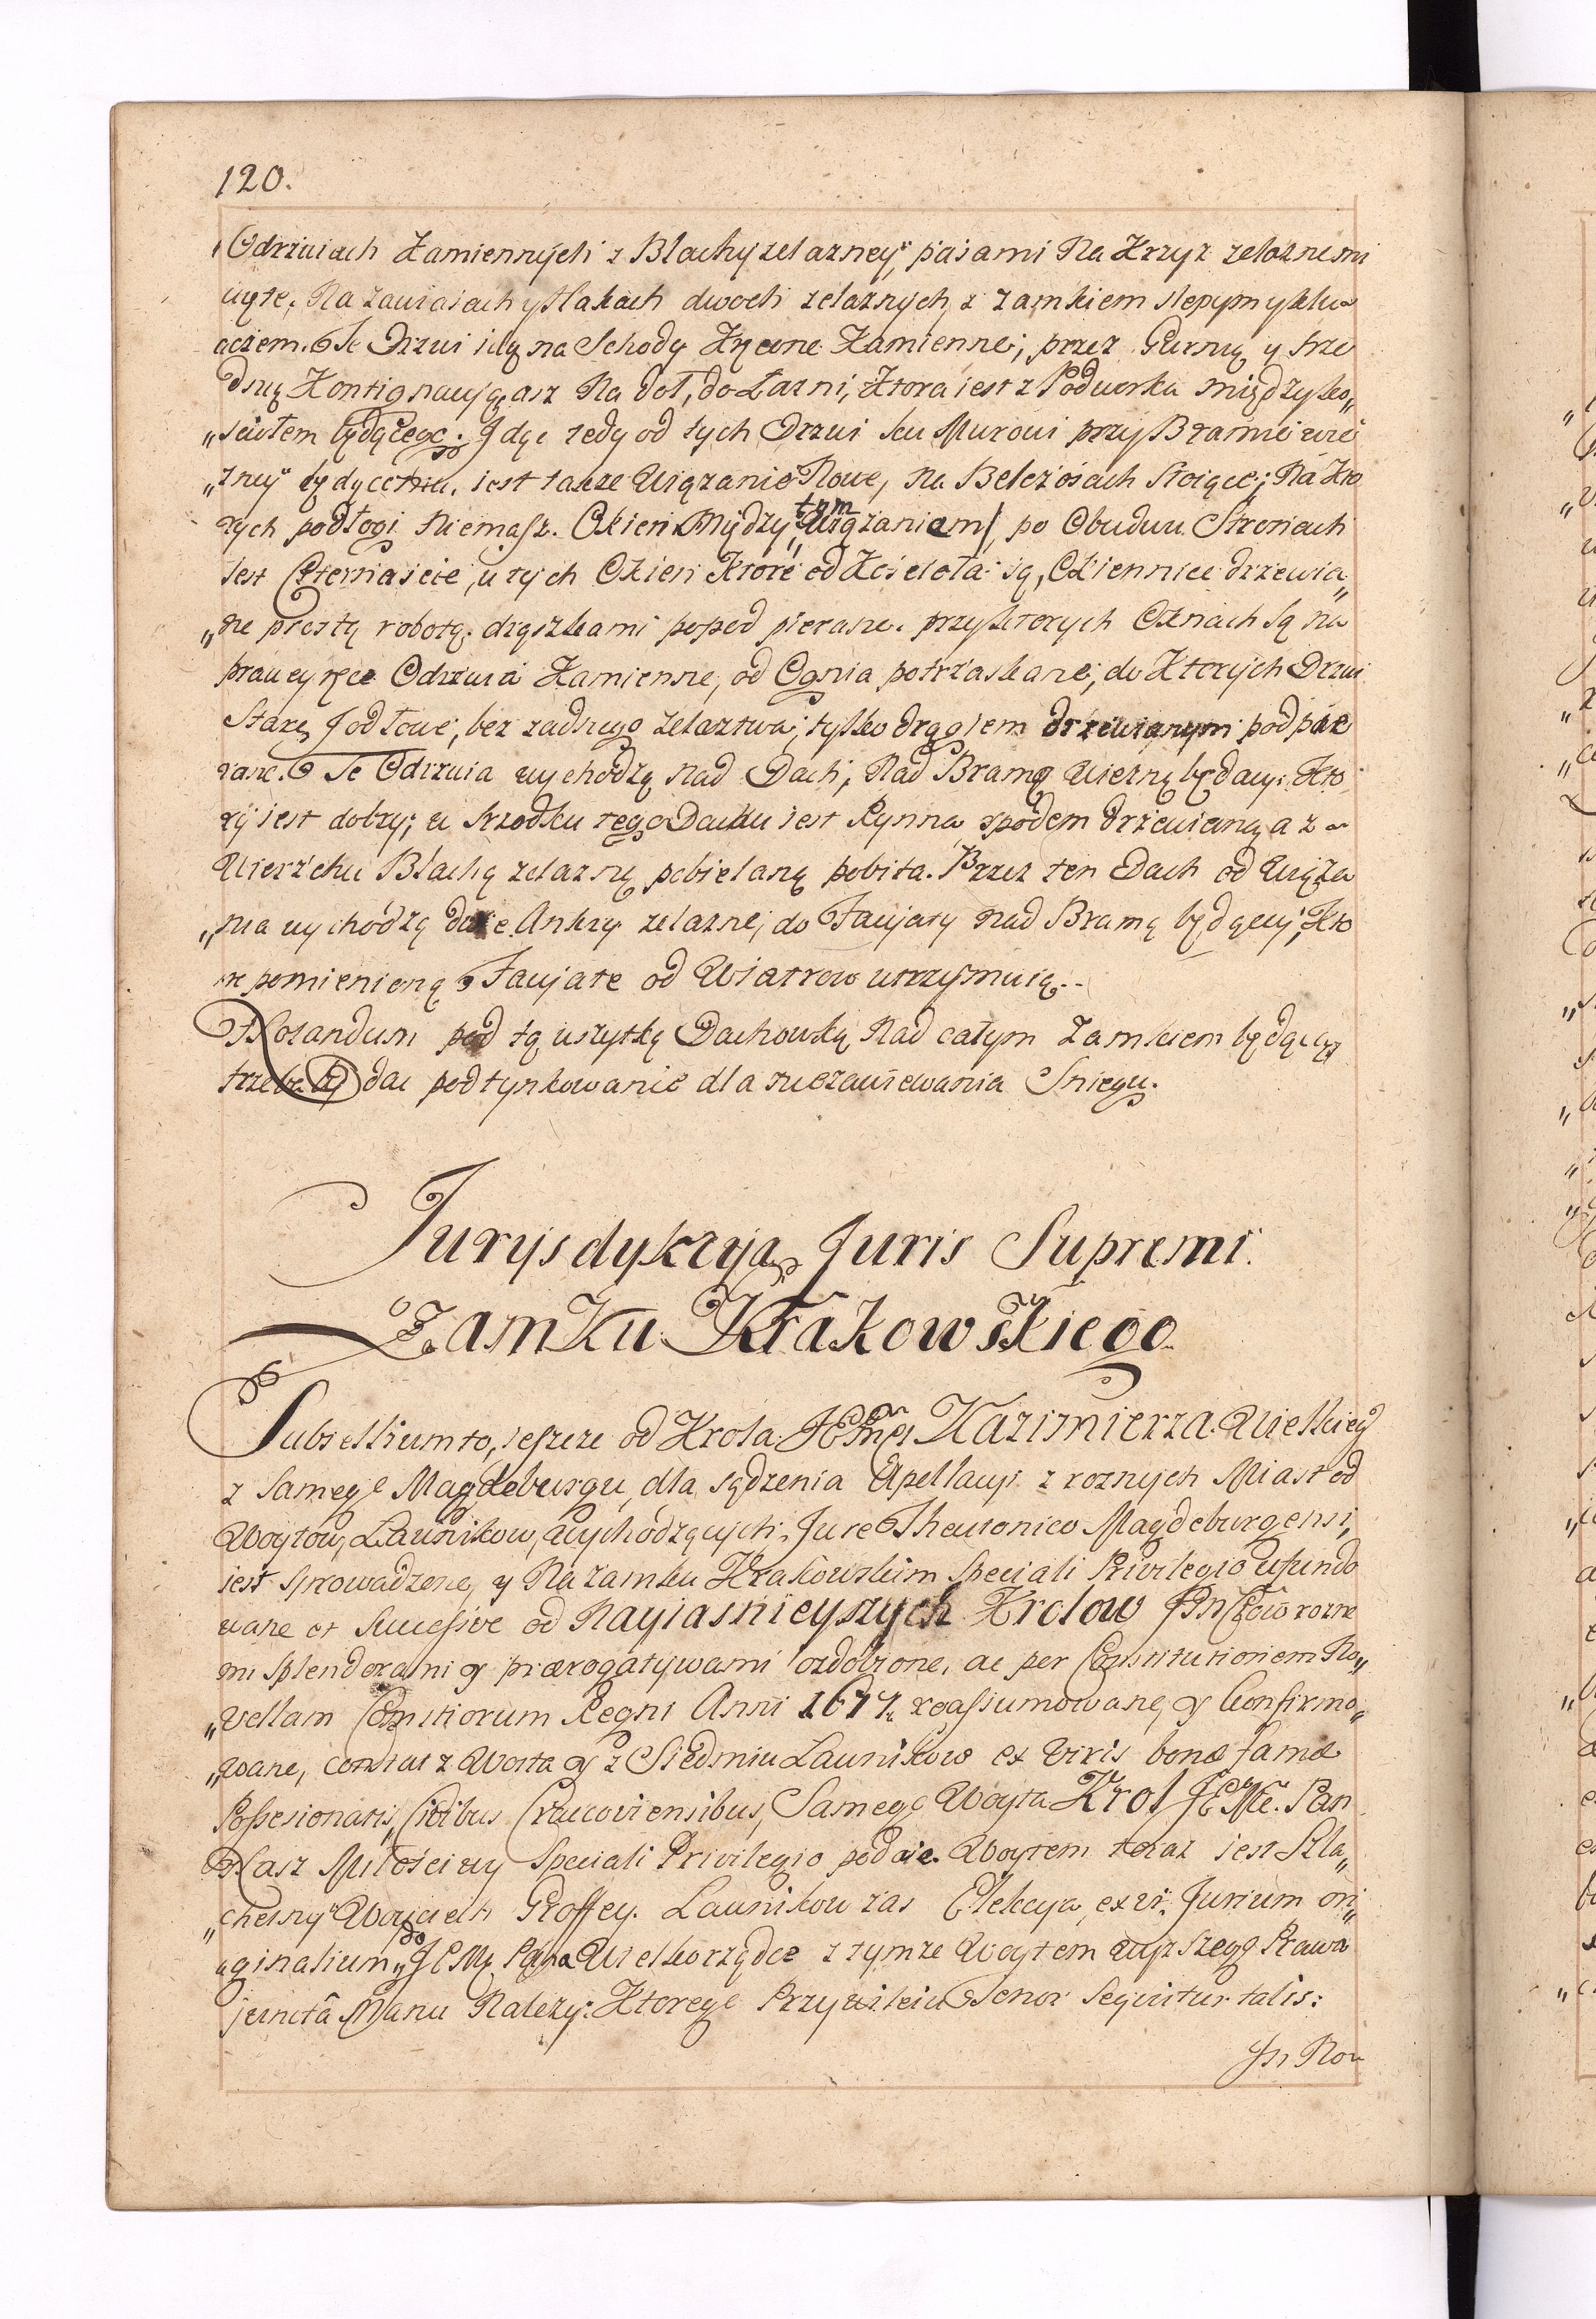 120.
Odrzwiach Kamiennych z Blachy zelazney, pasami Na Krzyz zelaznemi
wyte, Na zawiasach y Hakach dwoch zelaznych, z zamkiem slepym y klu
aczem. Te Drzwi idą na Schody Kręcone Kamienne; przez Gurną y srze
dnią Kontignacyą asz Na doł, do Łazni, Ktora iest z Podworka między ko„
„sciołem będącego. Idąc tedy od tych Drzwi ku Murowi przy Bramie wie
„zney będącemu, iest takze Wiązanie Nowe, Na Belczoiach Stoiące; Na Kto
rych podłogi Niemasz. Okien Między tym Wiązaniem, po Obudwu Stronach
iest Czternaście, u tych Okien Ktore od Kościoła są, Okiennice drzewia„
„ne prostą robotą drążkami popod pierane. przy ktorych Oknach są na
prawey ręce Odrzwia Kamienne, od Ognia potrzaskane, do Ktorych Drzwi
Stare Jodłowe, bez zadnego zelaztwa, tylko drągiem drzewianym pod pie
rane. Te Odrzwia wychodzą nad Dach, Nad Bramą Wiezną będący. Kto
ry iest dobry; w srzodku tego Dachu iest Rynna spodem drzewianą a z
Wierzchu Blachą zelazną pobielaną pobita. Przez ten Dach od Wiąza
„nia wychodzą dwie Ankry zelazne, do Facyaty nad Bramą będącey, Kto
re pomienioną Facyate od Wiatrow utrzymuią.
Notandum pod tą wszytką Dachowką Nad całym Zamkiem będącą
trzeba by dac podtynkowanie dla niezawiewania Sniegu.
Jurysdykcyja Juris Supremi
Zamku Krakowskiego
Subsellium to, ieszcze od Krola JEMci Kazimierza Wielkieg
z Samego Magdeburgu, dla sądzenia Apellacyi z roznych Miast od
Woytow, Ławnikow, wychodzących, Jure Theutonico Magdeburgensi,
iest sprowadzone, y Na zamku Krakowskim Speciali Privilegio ufundo
wane et Successive od Nayiasnieyszych Krolow rozne
mi Splendorami y praerogatywami ozdobione, ac per Constitutionem No„
„vellam Comitiorum Regni Anni 1677. reassumowane, y Confirmo„
„wane, constat z Woyta y z Siedmiu Ławnikow ex Viris bonae famae
Possesionatis, Civibus Cracoviensibus, Samego Woyta Krol JEMc. Pan
Nasz Miłościwy Speciali Privilegio podaie. Woytem teraz iest Szla„
„chetny Woyciech Groffey. Ławnikow zas Elekcya, ex vi Jurium ori„
„ginalium, do JEMci Pana Wielkorządce z tymze Woytem wyzszego Prawa
junctâ Manu Nalezy. Ktorego Przywileiu Tenor Sequitur talis:
In No